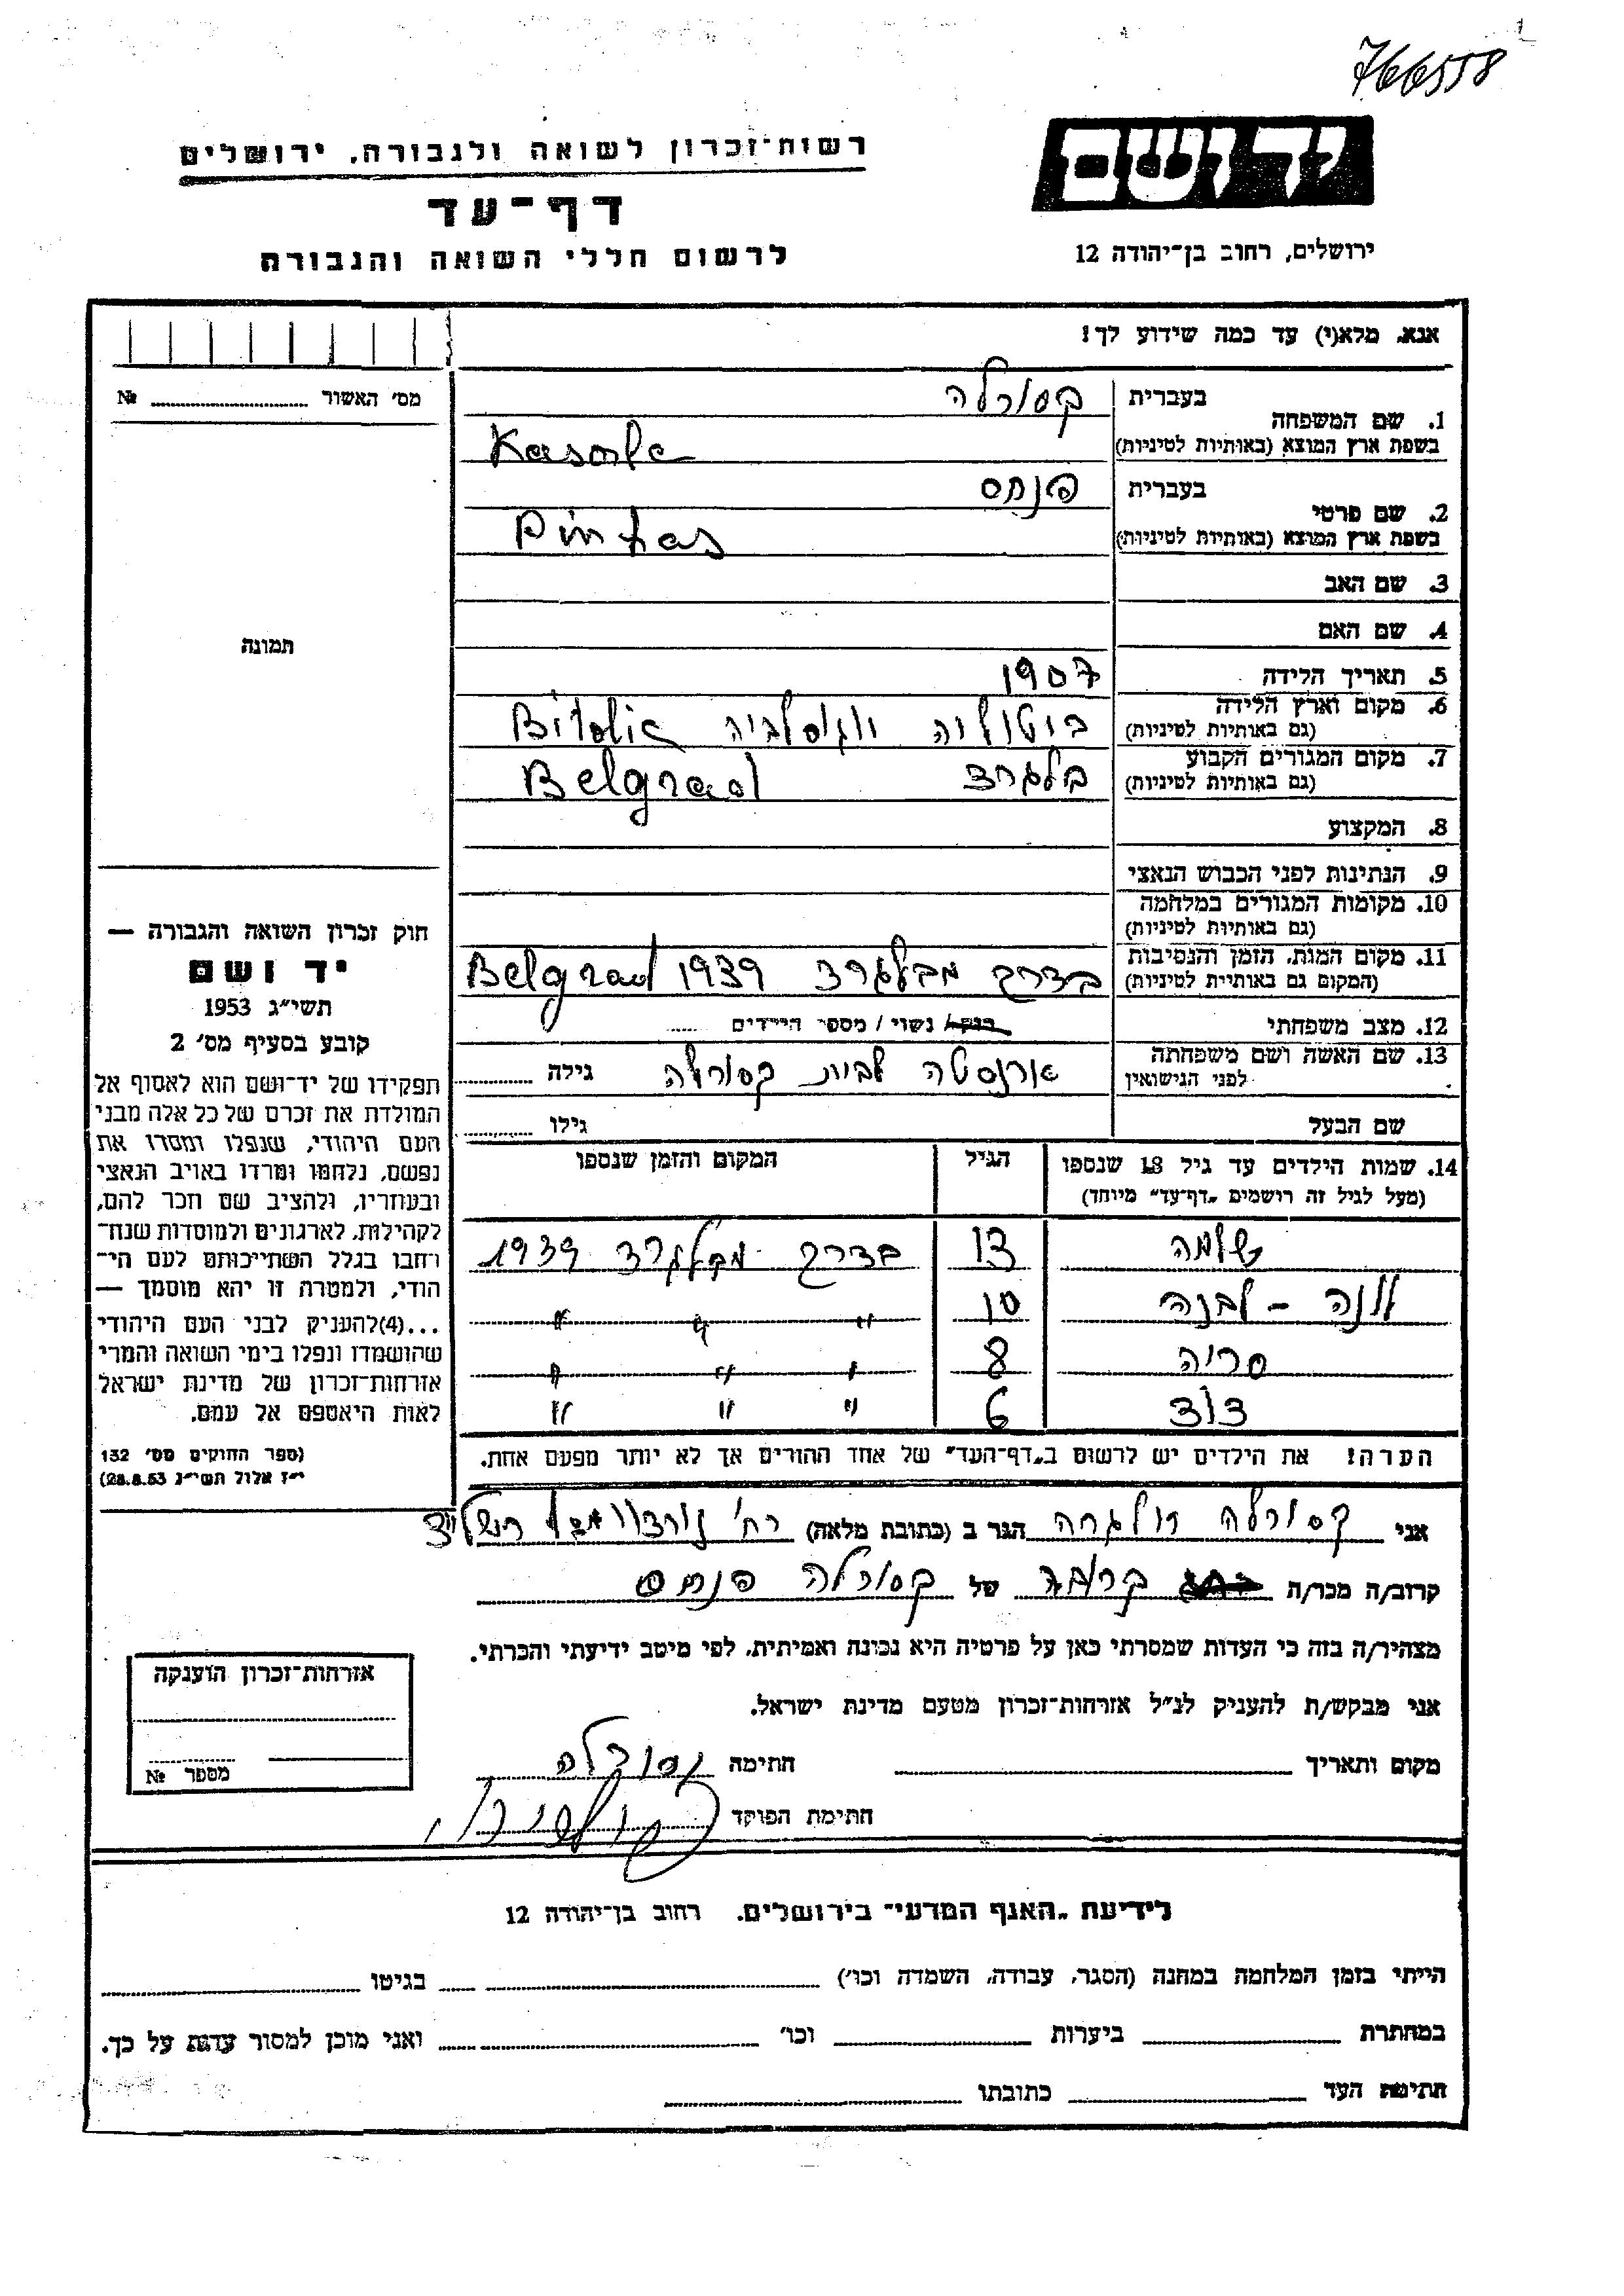 766558
יד ושם
ירושלים, רחוב בן־יהודה 12
רשות־זכרון לשואה ולגבורה. ירושלים
דף־עד
לרשום חללי השואה והגבורה
אנא. מלא(י) עד כמה שידוע לך!
מס׳ האשור № 
1. שם המשפחה
בעברית קסורלה
בשפת ארץ המוצא (באותיות לטיניות) Kasorla
2. שם פרטי
בעברית פנחס
בשפת ארץ המוצא (באותיות לטיניות) Pinkas
3. שם האב
4. שם האם
5. תאריך הלידה 1907
6. מקום וארץ הלידה ביטוליה יוגוסלביה Bitolia
(גם באותיות לטיניות)
7. מקום המגורים הקבוע בלגרד Belgrad
(גם באותיות לטיניות)
8. המקצוע
9. הנתינות לפני הכבוש הנאצי
10. מקומות המגורים במלחמה
(גם באותיות לטיניות)
11. מקום המות, הזמן והנסיבות בדרך מבלגרד 1939 Belgrad
(המקום גם באותיית לטיניות)
12. מצב משפחתי רווק / נשוי / מספר הילדים
13. שם האשה ושם משפחתה ארנסטה לבית קסורלה גילה
לפני הנישואין
שם הבעל גילו
14. שמות הילדים עד גיל 18 שנספו הגיל המקום והזמן שנספו
(מעל לגיל זה רושמים „דף־עד״ מיוחד)
שלמה 13 בדרך מבלגרד 1939
לונה - לבנה 10 〃 〃 〃
סריה 8 〃 〃 〃
דוד 6 〃 〃 〃
הערה! את הילדים יש לרשום ב„דף־העד״ של אחד ההורים אך לא יותר מפעם אחת.
תמונה
חוק זכרון השואה והגבורה —
יד ושם
תשי״ג 1953
קובע בסעיף מס׳ 2
תפקידו של יד־ושם הוא לאסוף אל
המולדת את זכרם של כל אלה מבני
העם היהודי, שנפלו ומסרו את
נפשם, נלחמו ומרדו באויב הנאצי
ובעוזריו, ולהציב שם וזכר להם,
לקהילות, לארגונים ולמוסדות שנח־
רחבו בגלל השתייכותם לעם הי־
הודי, ולמטרת זו יהא מוסמך —
...(4)להעניק לבני העם היהודי
שהושמדו ונפלו בימי השואה והמרי
אזרחות־זכרון של מדינת ישראל
לאות היאספם אל עמם.
(ספר החוקים מס׳ 132
י״ז אלול תשי״ג 28.8.53)
אני קסורלה הגר ב (כתובת מלאה) רח׳
קרוב/ה מכר/ה קרובה של קסורלה פנחס
מצהיר/ה בזה כי העדות שמסרתי כאן על פרטיה היא נכונה ואמיתית, לפי מיטב ידיעתי והכרתי.
אני מבקש/ת להעניק לנ״ל אזרחות־זכרון מטעם מדינת ישראל.
מקום ותאריך חתימה קסורלה
חתימת הפוקד
אזרחות־זכרון הוענקה
מספר №
לידיעת „האגף המדעי״ בירושלים. רחוב בן־יהודה 12
הייתי בזמן המלחמה במחנה (הסגר, עבודה, השמדה וכו׳) בגיטו
במחתרת ביערות וכו׳ ואני מוכן למסור עדות על כך.
חתימת העד כתובתו